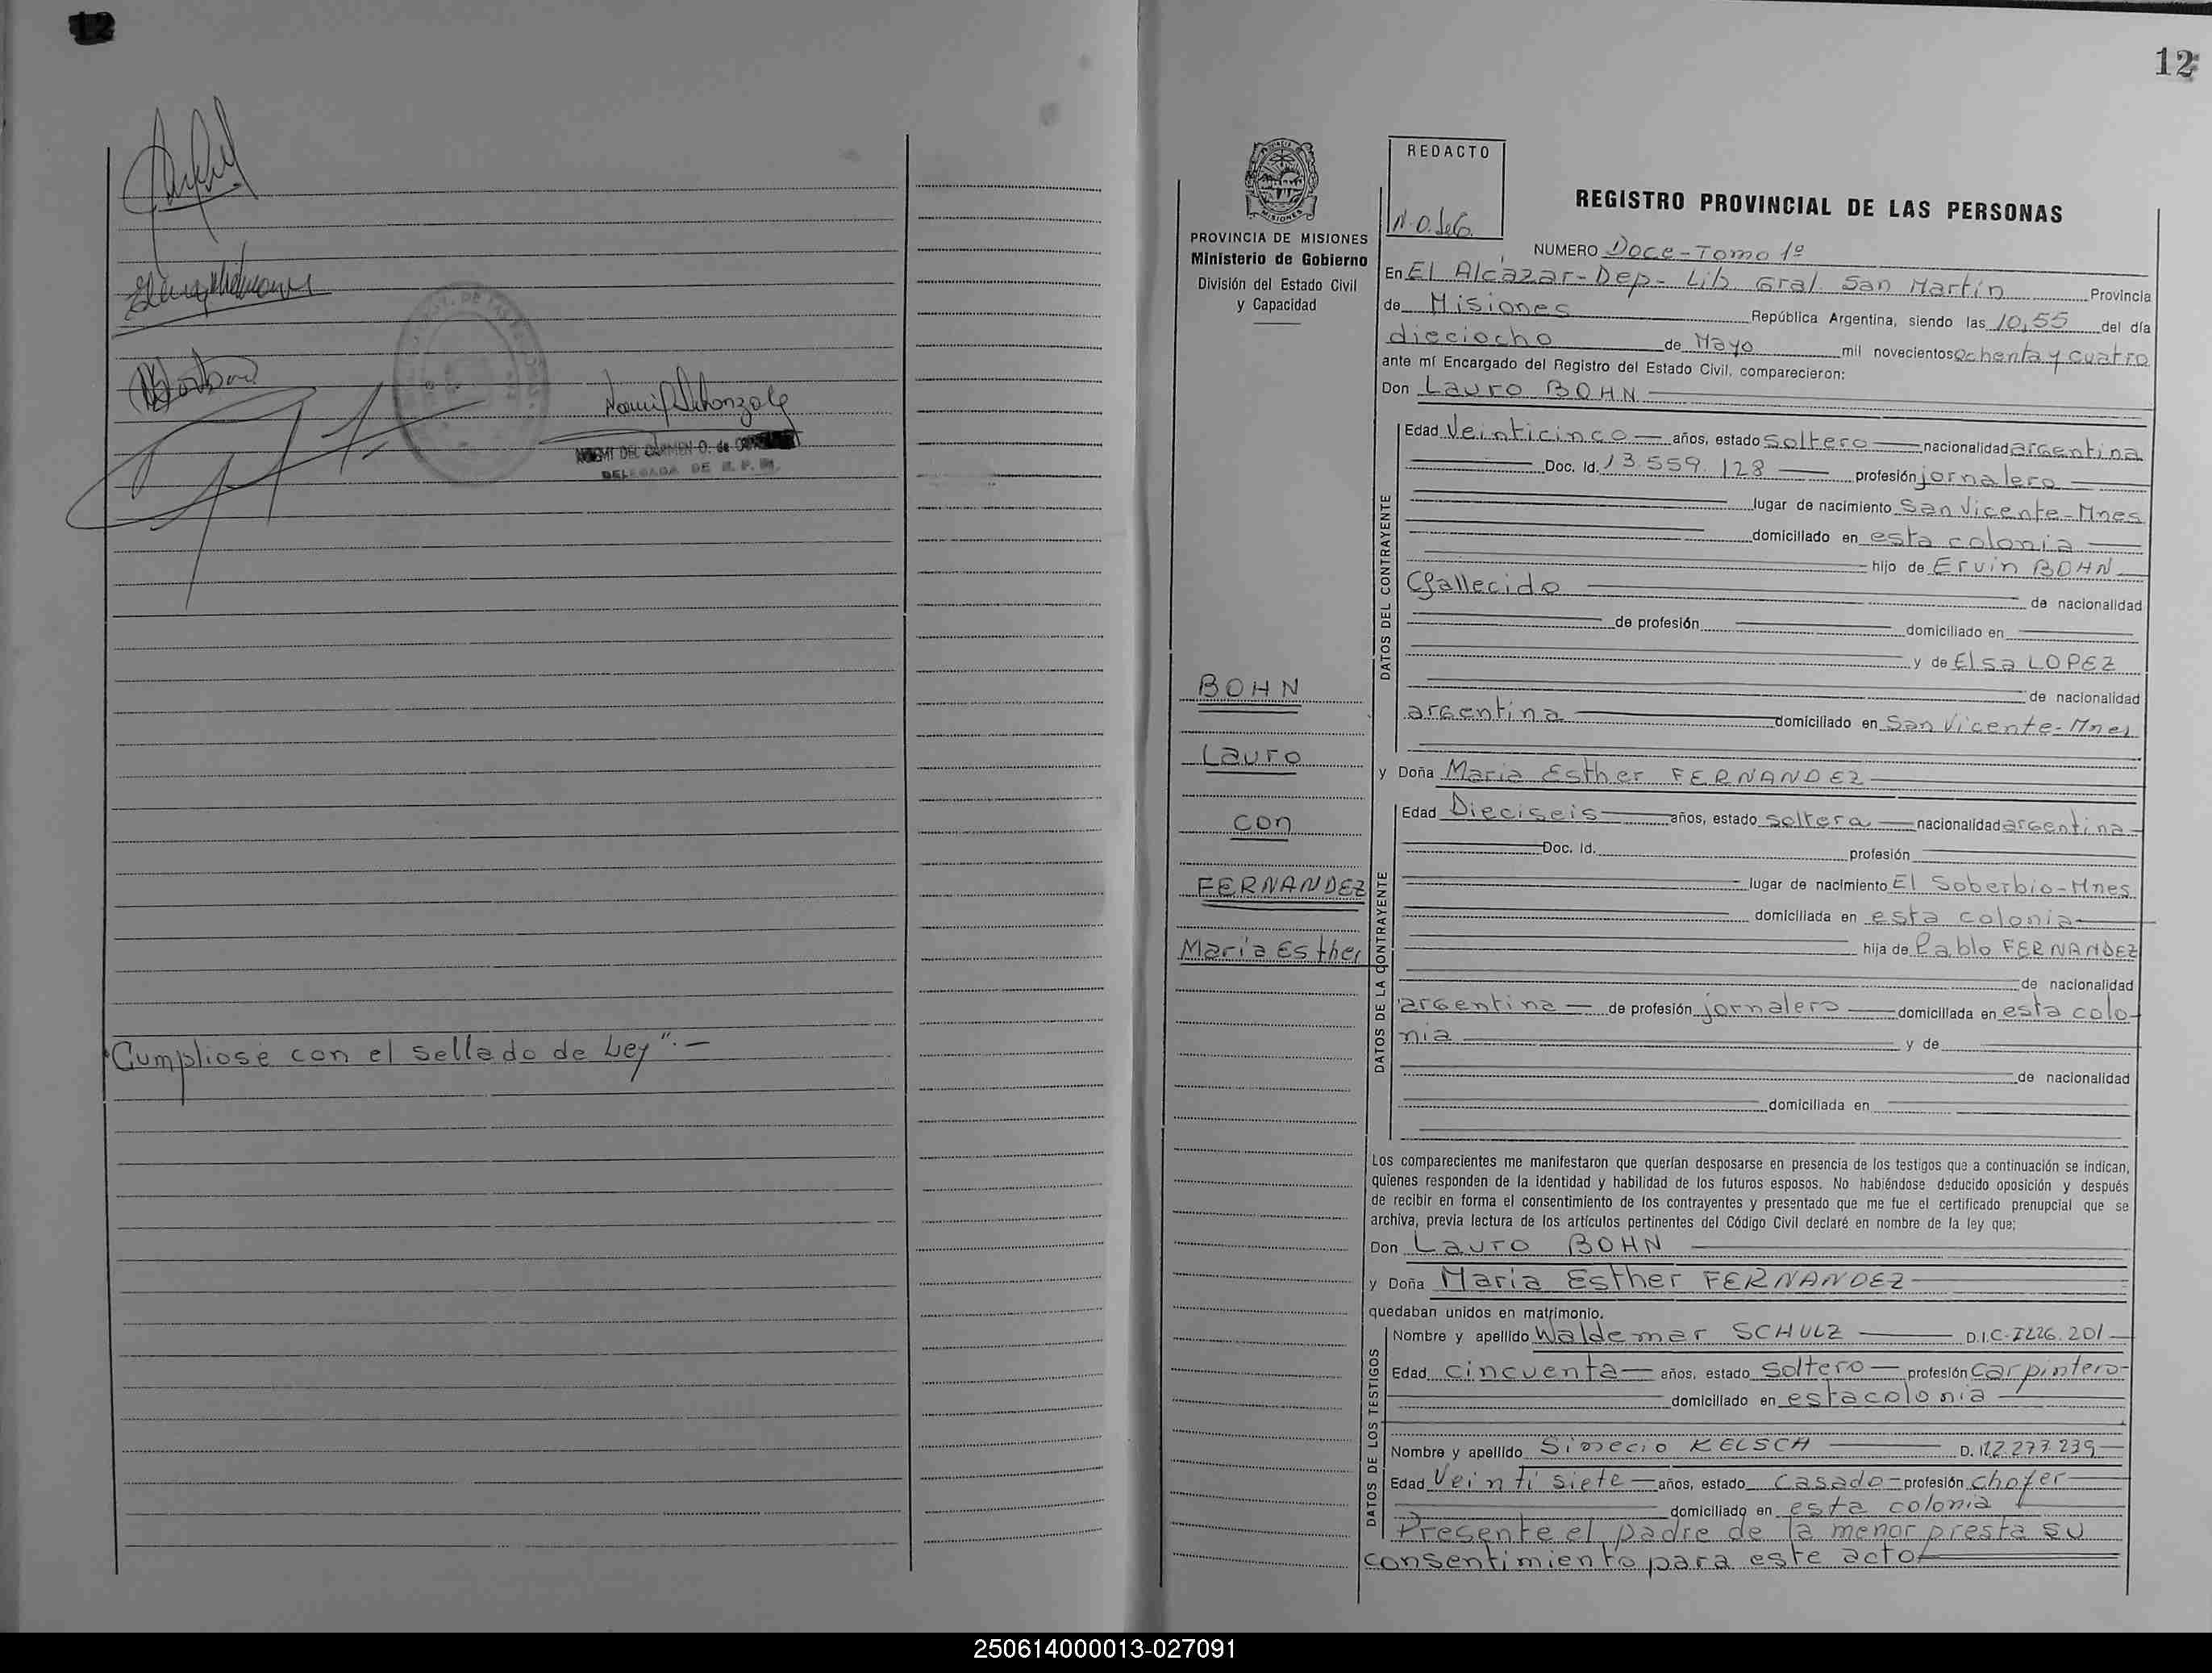 12
Cumpliose con el sellado de Ley". —
NOEMI DEL CARMEN O. de
DELEGADA DE R. P. P.
12
REDACTO
N.O. de G.
PROVINCIA DE MISIONES
Ministerio de Gobierno
División del Estado Civil
y Capacidad
BOHN
Lauro
con
FERNANDEZ
Maria Esther
REGISTRO PROVINCIAL DE LAS PERSONAS
NUMERO Doce - Tomo 1º
En El Alcázar - Dep - Lib. Gral. San Martin Provincia
de Misiones República Argentina, siendo las 10,55 del día
dieciocho de Mayo mil novecientos ochenta y cuatro
ante mí Encargado del Registro del Estado Civil, comparecieron:
Don Lauro BOHN
DATOS DEL CONTRAYENTE
Edad Veinticinco años, estado soltero nacionalidad argentina
Doc. Id. 13.559.128 profesión jornalero
lugar de nacimiento San Vicente - Mnes
domiciliado en esta colonia
hijo de Ervin BOHN
(fallecido de nacionalidad
de profesión domiciliado en
y de Elsa LOPEZ
de nacionalidad
argentina domiciliado en San Vicente - Mnes
y Doña Maria Esther FERNANDEZ
DATOS DE LA CONTRAYENTE
Edad Dieciseis años, estado soltera nacionalidad argentina
Doc. Id. profesión
lugar de nacimiento El Soberbio - Mnes
domiciliada en esta colonia
hija de Pablo FERNANDEZ
de nacionalidad
argentina de profesión jornalero domiciliada en esta colo-
nia y de
de nacionalidad
domiciliada en
Los comparecientes me manifestaron que querían desposarse en presencia de los testigos que a continuación se indican,
quienes responden de la identidad y habilidad de los futuros esposos. No habiéndose deducido oposición y después
de recibir en forma el consentimiento de los contrayentes y presentado que me fue el certificado prenupcial que se
archiva, previa lectura de los artículos pertinentes del Código Civil declaré en nombre de la ley que;
Don Lauro BOHN
y Doña Maria Esther FERNANDEZ
quedaban unidos en matrimonio.
DATOS DE LOS TESTIGOS
Nombre y apellido Waldemar SCHULZ D.I.C. 7226.201
Edad cincuenta años, estado soltero profesión carpintero
domiciliado en esta colonia
Nombre y apellido Simecio KELSCH D. 12.277.239
Edad Veintisiete años, estado casado profesión chofer
domiciliado en esta colonia
Presente el padre de la menor presta su
consentimiento para este acto
250614000013-027091